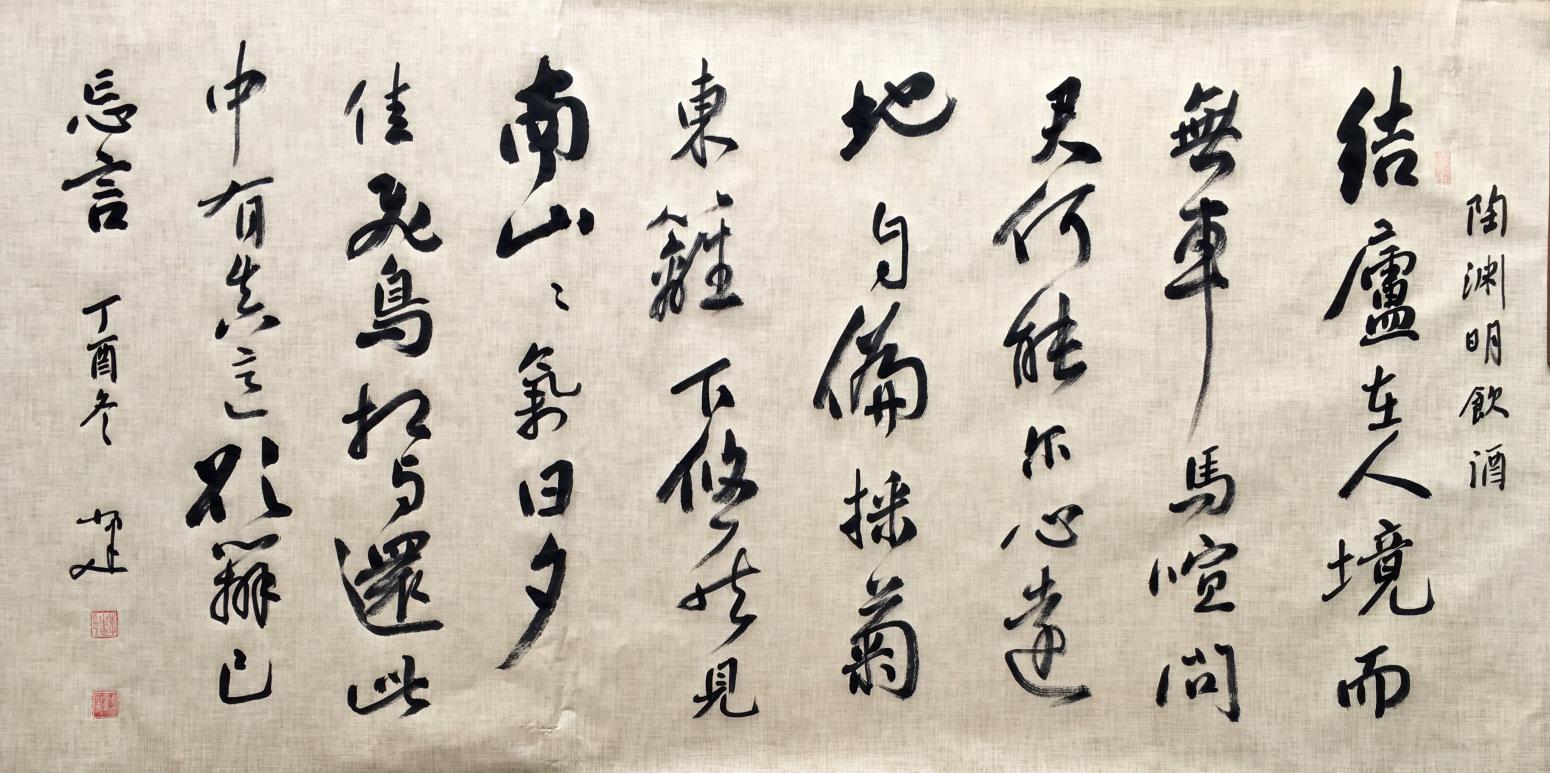 陶渊明飲酒
結廬在人境而
無車馬喧問
君何能尔心遠
地自偏採菊
東籬下悠然見
南山山氣日夕
佳飛鳥相与還此
中有真意欲辯已
忘言 丁酉冬 建